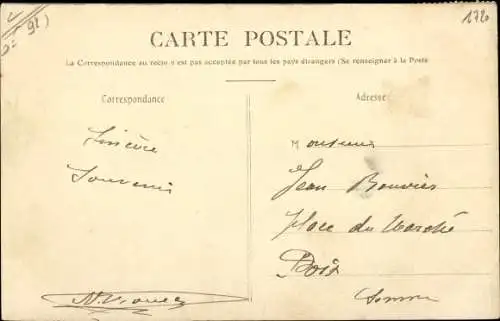 1720
CARTE POSTALE
La Correspondance au recto n'est pas acceptée par tous les pays étrangers (Se renseigner à la Poste
Correspondance
Adresse
Sincère
Souvenir
Monsieur
Jean Bouvier
Place du Marché
Poix
Somme